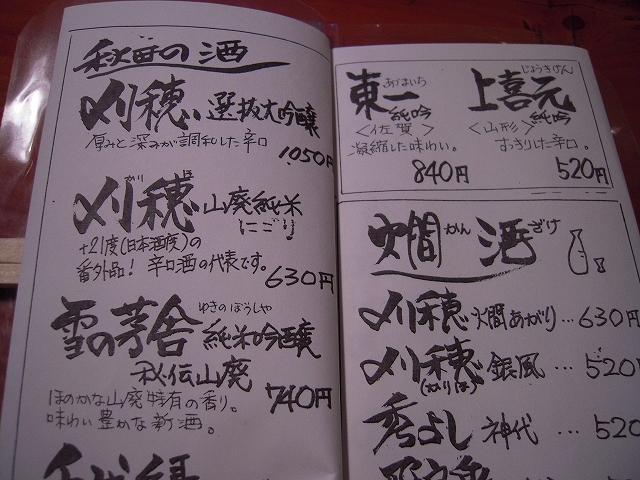 秋田の酒
刈穂 選抜大吟醸
厚みと深みが調和した辛口
1050円
かり ほ
刈穂 山廃純米
にごり
+21度(日本酒度)の
番外品!辛口酒の代表です。
630円
ゆきのぼうしゃ
雪の茅舎 純米吟醸
秘伝山廃
ほのかな山廃特有の香り。
味わい豊かな新酒。
740円
あづまいち
東一 純吟
<佐賀>
凝縮した味わい。
840円
じょうきげん
上喜元
純吟
<山形>
すっきりした辛口。
520円
燗 かん 酒 ざけ
刈穂 燗あがり…630円
刈穂 銀風 …520
(かりほ)
秀よし 神代 …520